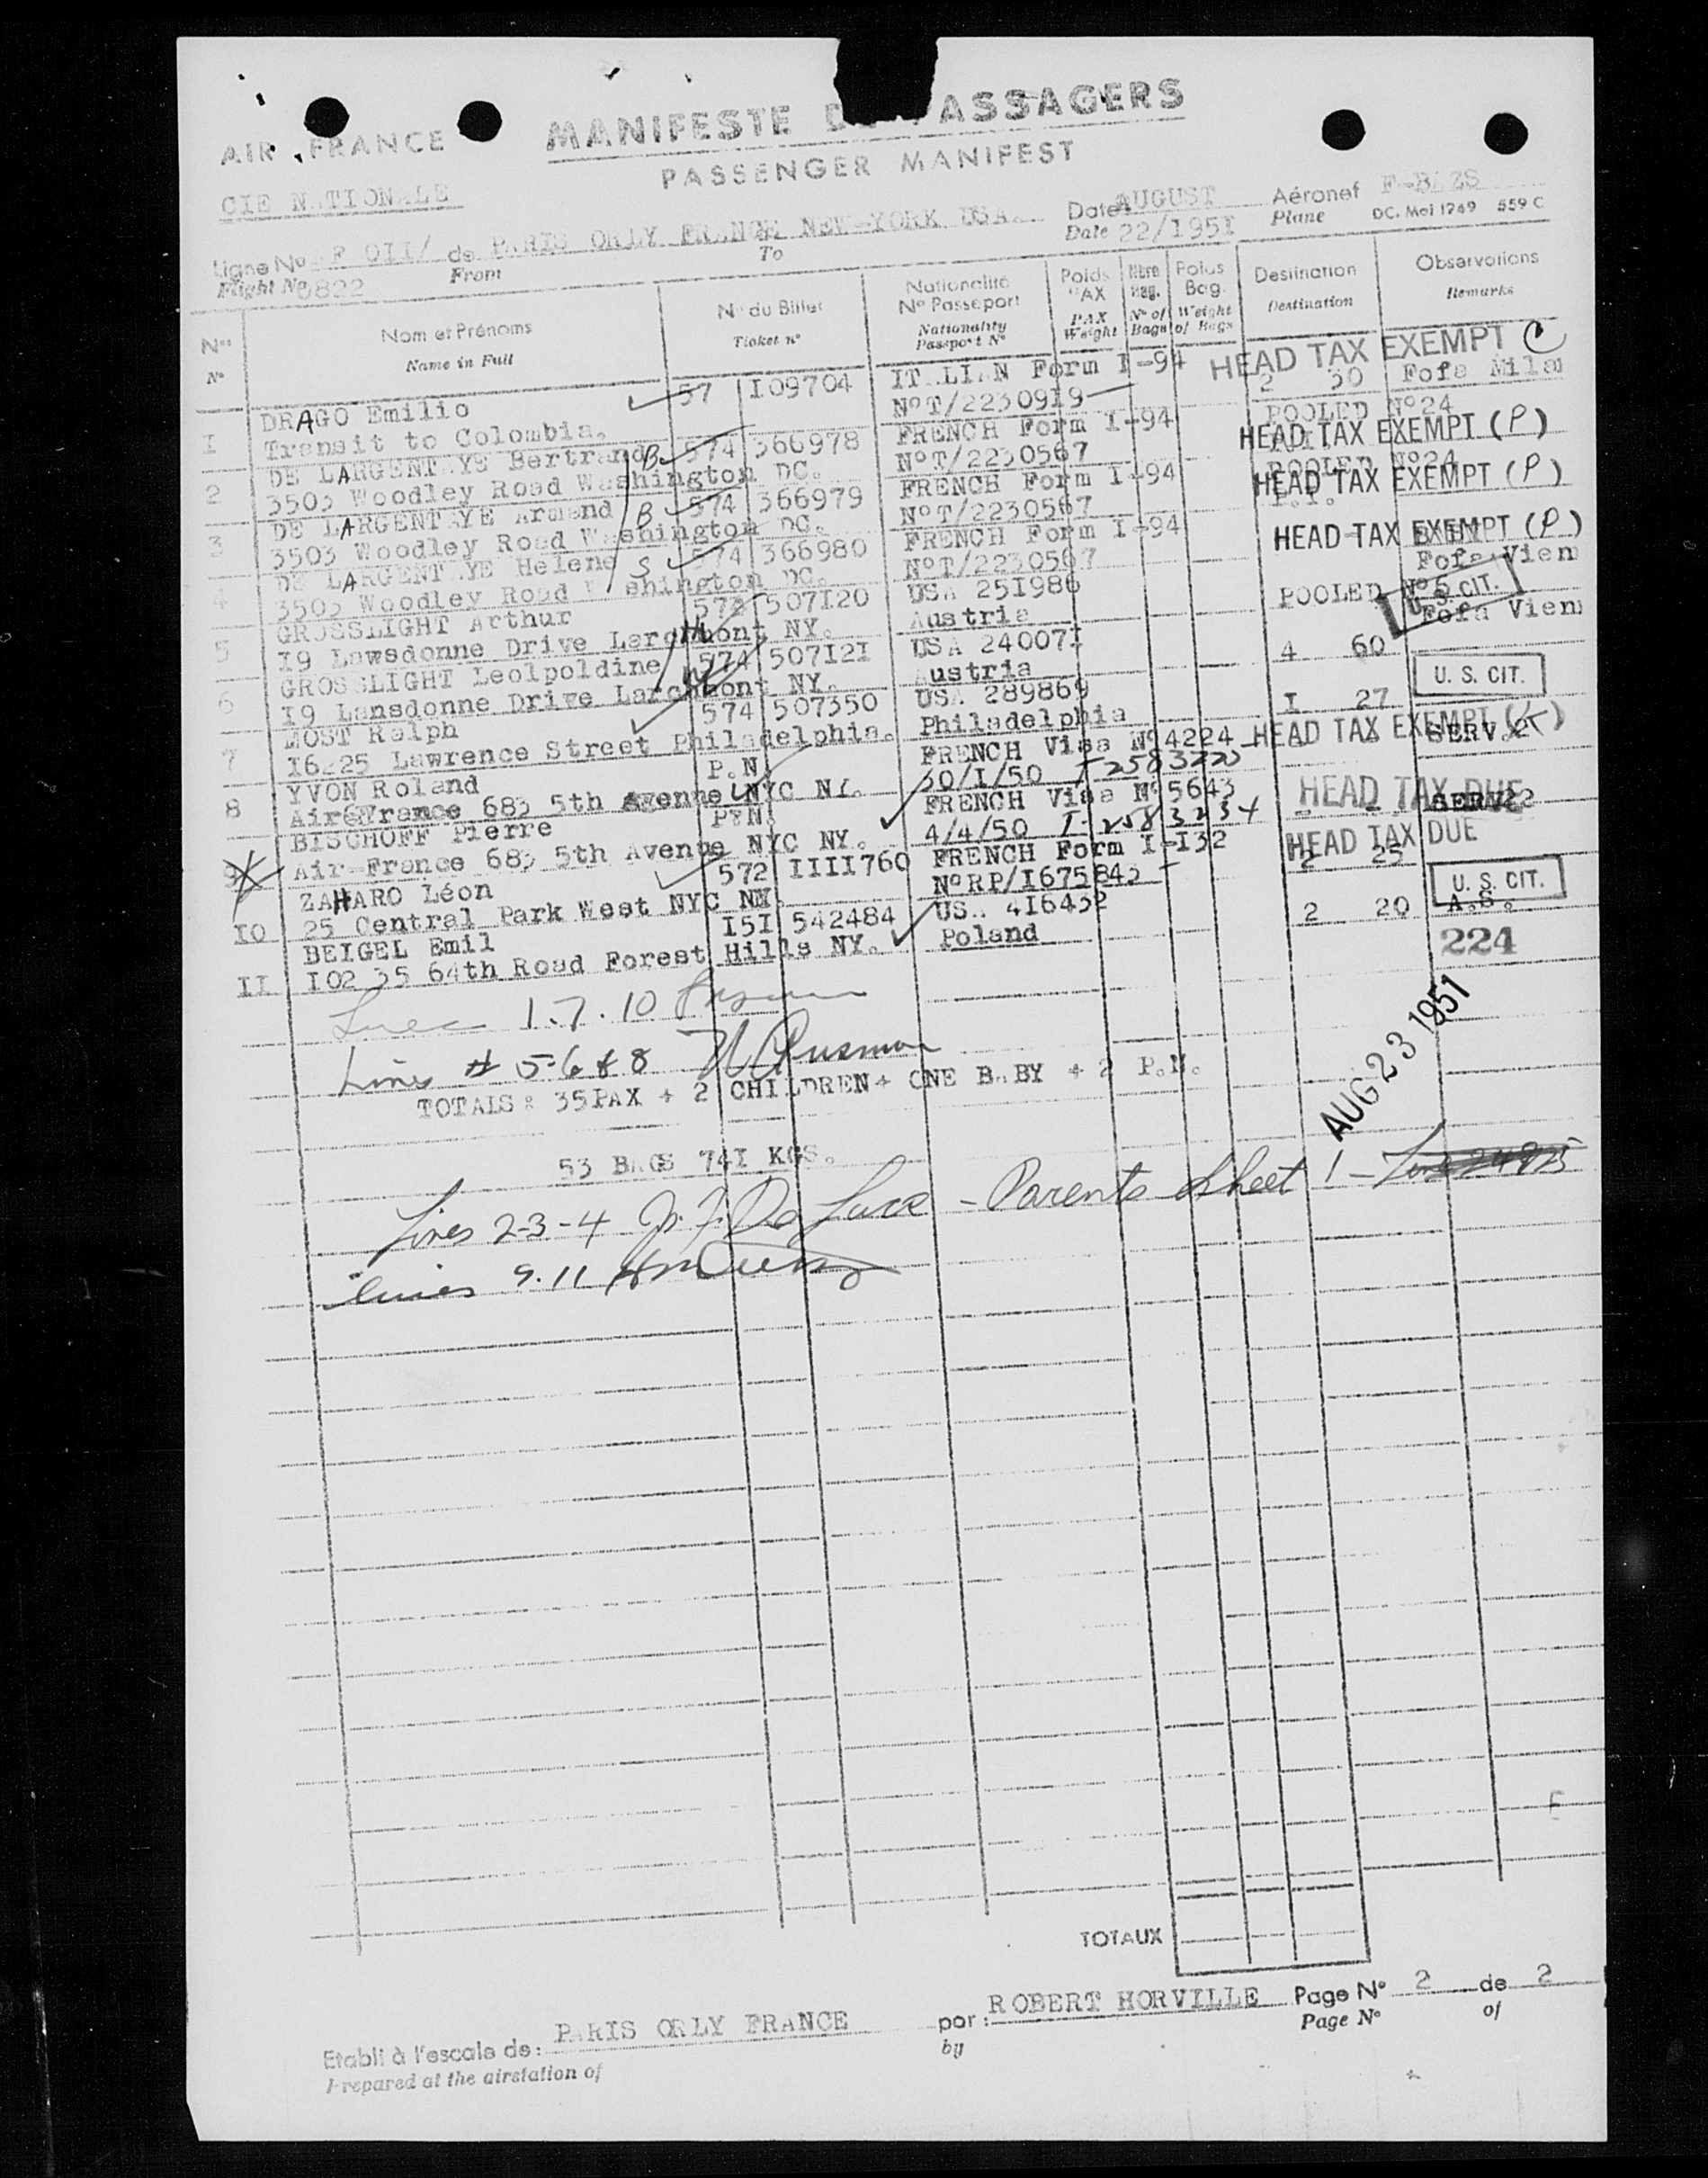 AIR FRANCE
MANIFESTE D ASSAGERS
PASSENGER MANIFEST
CIE N TIONALE
Date AUGUST
Date 22/195I
Aéronef
Plane
DC. Mai 1949 559 C
Ligne No F OII/ de PARIS ORLY FRANCE NEW-YORK USA.
Flight No 6822 From To
Nos
No
Nom et Prénoms
Name in Full
No du Billet
Ticket no
Nationalité
No Passeport
Nationality
Passport No
Poids PAX
PAX Weight
Nbre Bag.
No of Bags
Poids Bag.
Weight of Bags
Destination
Destination
Observations
Remarks
I DRAGO Emilio 57 I09704 IT.LIAN Form I-94 HEAD TAX EXEMPT
Transit to Colombia. NoT/2230919 2 30 Fofa Milan
2 DE LARGENTAYE Bertrand B 574 366978 FRENCH Form I-94 POOLED No24 HEAD TAX EXEMPT (P)
3503 Woodley Road Washington DC. NoT/2230567
3 DE LARGENTAYE Armand B 574 366979 FRENCH Form I-94 POOLED No24 HEAD TAX EXEMPT (P)
3503 Woodley Road Washington DC. NoT/2230567
4 DE LARGENTAYE Helene S 574 366980 FRENCH Form I-94 HEAD TAX EXEMPT (P)
3503 Woodley Road Washington DC. NoT/2230567 Fofa Vien
5 GROSSLIGHT Arthur 572 507I20 USA 25I986 POOLED No5 U.S. CIT.
I9 Lawsdonne Drive Larchmont NY. Austria Fofa Vien
6 GROSSLIGHT Leolpoldine 574 507I2I USA 24007I 4 60
I9 Lansdonne Drive Larchmont NY. Austria U. S. CIT.
7 MOST Ralph 574 507350 USA 289869 I 27
I6 25 Lawrence Street Philadelphia. Philadelphia
8 YVON Roland P.N. FRENCH Visa No4224 HEAD TAX EXEMPT SERV.
Air France 683 5th Avenue NYC NY. 30/I/50
9 BISCHOFF Pierre P.N. FRENCH Visa No5643 HEAD TAX DUE SERV.
Air France 683 5th Avenue NYC NY. 4/4/50
I0 ZAHARO Léon 572 IIII760 FRENCH Form I-I32 HEAD TAX DUE
25 Central Park West NYC NY. NoRP/I675843 2 25
II BEIGEL Emil I5I 542484 USA 4I6432 2 20 U. S. CIT. A.S.
I02 35 64th Road Forest Hills NY. Poland
224
1.7.10
Lines # 5-6 & 8
AUG 23 1951
TOTALS: 35PAX + 2 CHILDREN + ONE BABY + 2 P.N.
53 BAGS 74I KGS.
Lines 2-3-4 - Parents Sheet 1 -
Lines 9.11
TOTAUX
Etabli à l'escale de: PARIS ORLY FRANCE par: ROBERT HORVILLE Page No 2 de 2
Prepared at the airstation of by Page No of